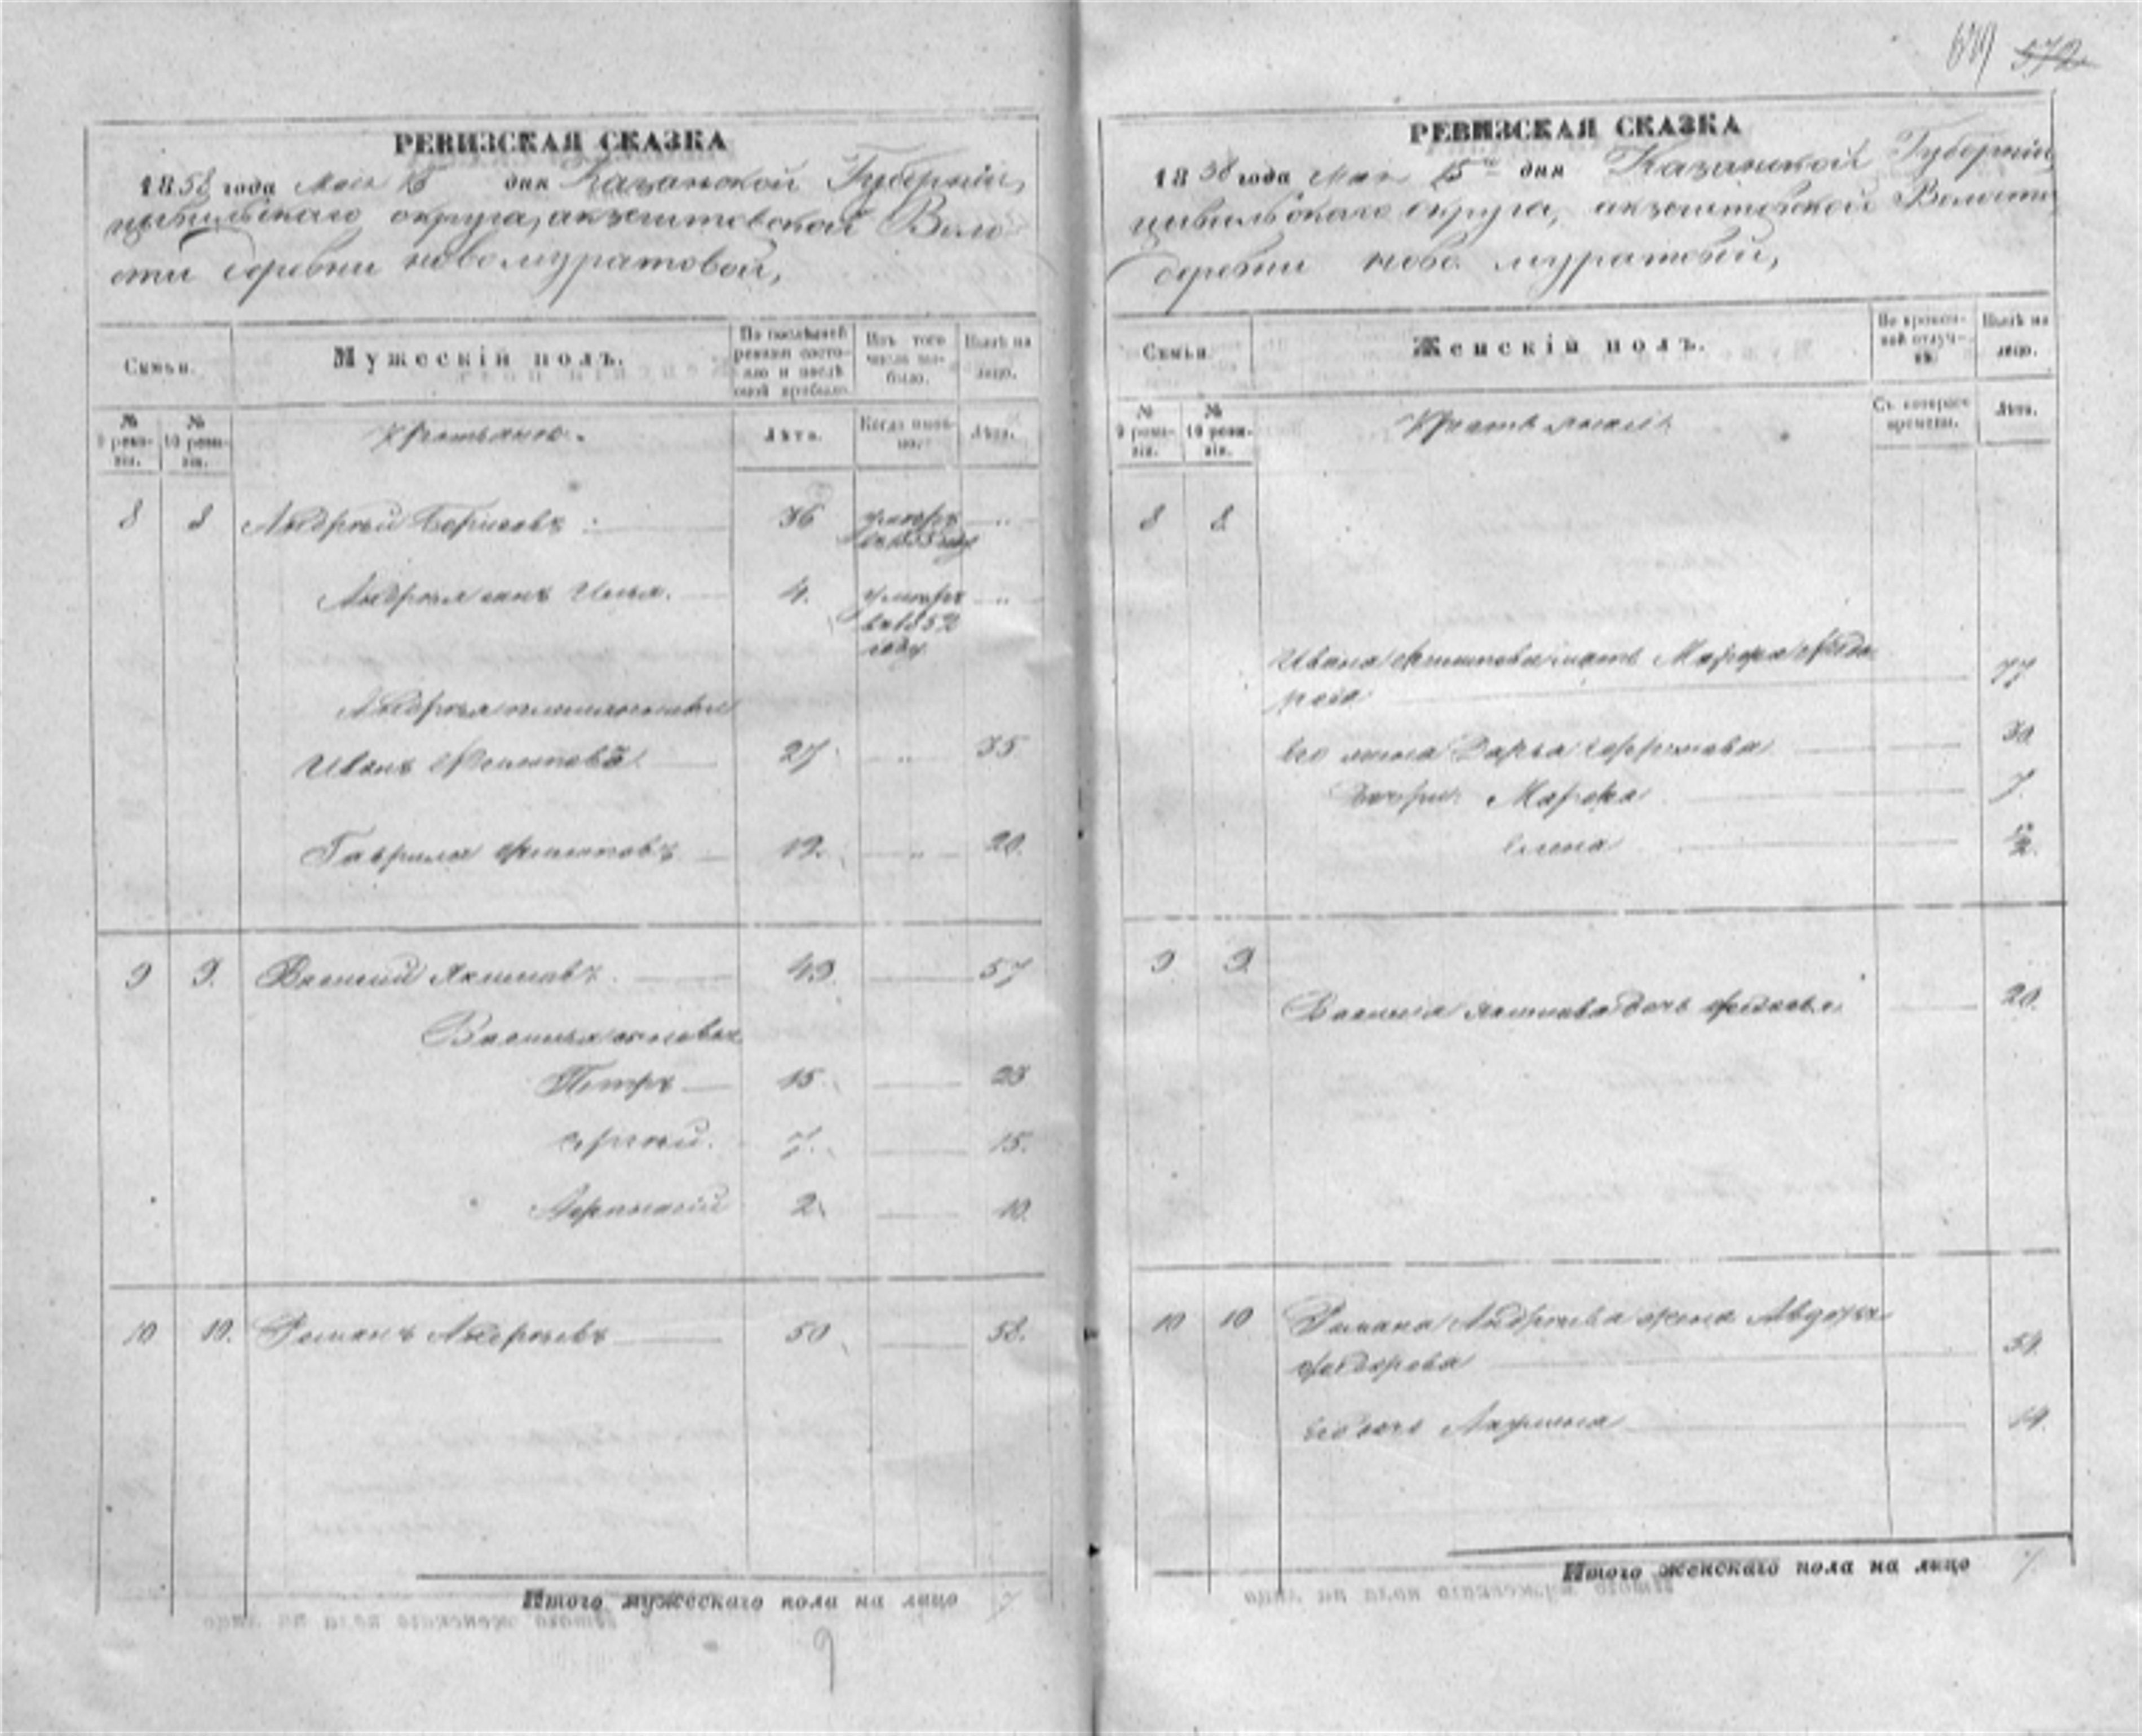 649 572
РЕВИЗСКАЯ СКАЗКА
1858 года Мая 15 дня Казанской Губернии,
цивильскаго округа, акзегитовской Воло
сти деревни новомуратовой,
Семьи.
Мужескій полъ.
По послѣдней ревизіи состояло и послѣ оной прибыло.
Изъ того числа выбыло.
Нынѣ на лицо.
№ 9 ревизіи.
№ 10 ревизіи.
Крестьяне.
Лѣта.
Когда именно.
Лѣта.
8 8 Андрей Борисовъ 36 умеръ в 1855 году „
Андрея сынъ Илья. 4. умеръ в 1852 году „
Андрея
Иванъ Филиповъ 27 „ 35
Гаврила Филиповъ 12. „ 20.
9 9. Василий Якимовъ 49. 57
Василья сыновья
Петръ 15 23
сергей. 7. 15.
2. 10.
10 10. Романъ Андреевъ 50 58.
Итого мужескаго пола на лицо 7
9
РЕВИЗСКАЯ СКАЗКА
1858 года Мая 15 дня Казанской Губернии,
цивильскаго округа, акзегитовской Волости
деревни ново муратовой,
Семьи
Женскій полъ.
Во временной отлучкѣ.
Нынѣ на лицо.
№ 9 ревизіи.
№ 10 ревизіи.
Съ котораго времени.
Лѣта.
8 8.
Ивана Филипова мать Марфа Федо
рова 77
его жена Дарья 30
Дочери Марфа 7
елена 1/2.
9 9.
Василия Якимова дочь 20.
10 10 Романа Андреева жена Авдотья
федорова 54.
ихдочь 14.
Итого женскаго пола на лицо 7.